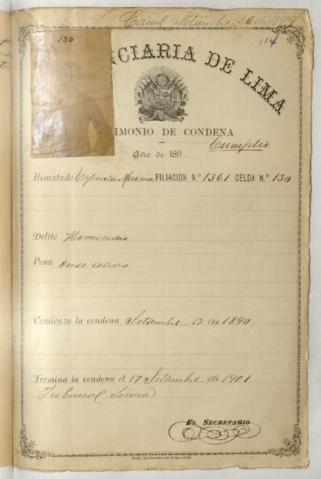 130
114
NCIARIA DE LIMA
IMONIO DE CONDENA
Cumplió
Año de 189
Rematado FILIACION N.º 1361 CELDA N.º 130
Delito Homicidio
Pena once años
Comienza la condena Setembre 17 de 1890
Termina la condena el 17 Setembre de 1901
Tribunal Lima
EL SECRETARIO